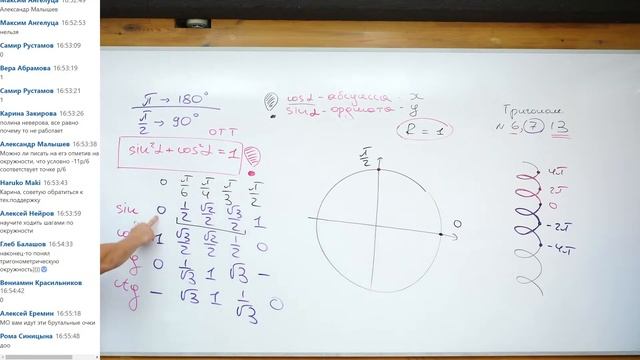 Александр Малышев
Максим Ангелуца 16:52:53
нельзя
Самир Рустамов 16:53:09
0
Вера Абрамова 16:53:19
1
Самир Рустамов 16:53:21
1
Карина Закирова 16:53:26
полина неверова, все равно
почему то не работает
Александр Малышев 16:53:38
Можно ли писать на егэ отметив на
окружности, что условно -11р/6
соответствует точке р/6
Haruko Maki 16:53:43
Карина, советую обратиться к
тех.поддержку
Алексей Нейров 16:53:59
научите ходить шагами по
окружности
Глеб Балашов 16:54:33
наконец-то понял
тригонометрическую
окружность))))
Вениамин Красильников
16:54:42
0
Алексей Еремин 16:55:18
МО вам идут эти брутальные очки
Рома Синицына 16:55:48
доо
π → 180°
π/2 → 90°
ОТТ
sin²α + cos²α = 1
0 π/6 π/4 π/3 π/2
sin 0 1/2 √2/2 √3/2 1
1 √3/2 √2/2 1/2 0
0 1/√3 1 √3 –
ctg – √3 1 1/√3 0
cosα – абсцисса – x
sinα – ордината – y
R = 1
π/2
0
Тригонометр
№ 6, 7 13
4π
2π
0
-2π
-4π